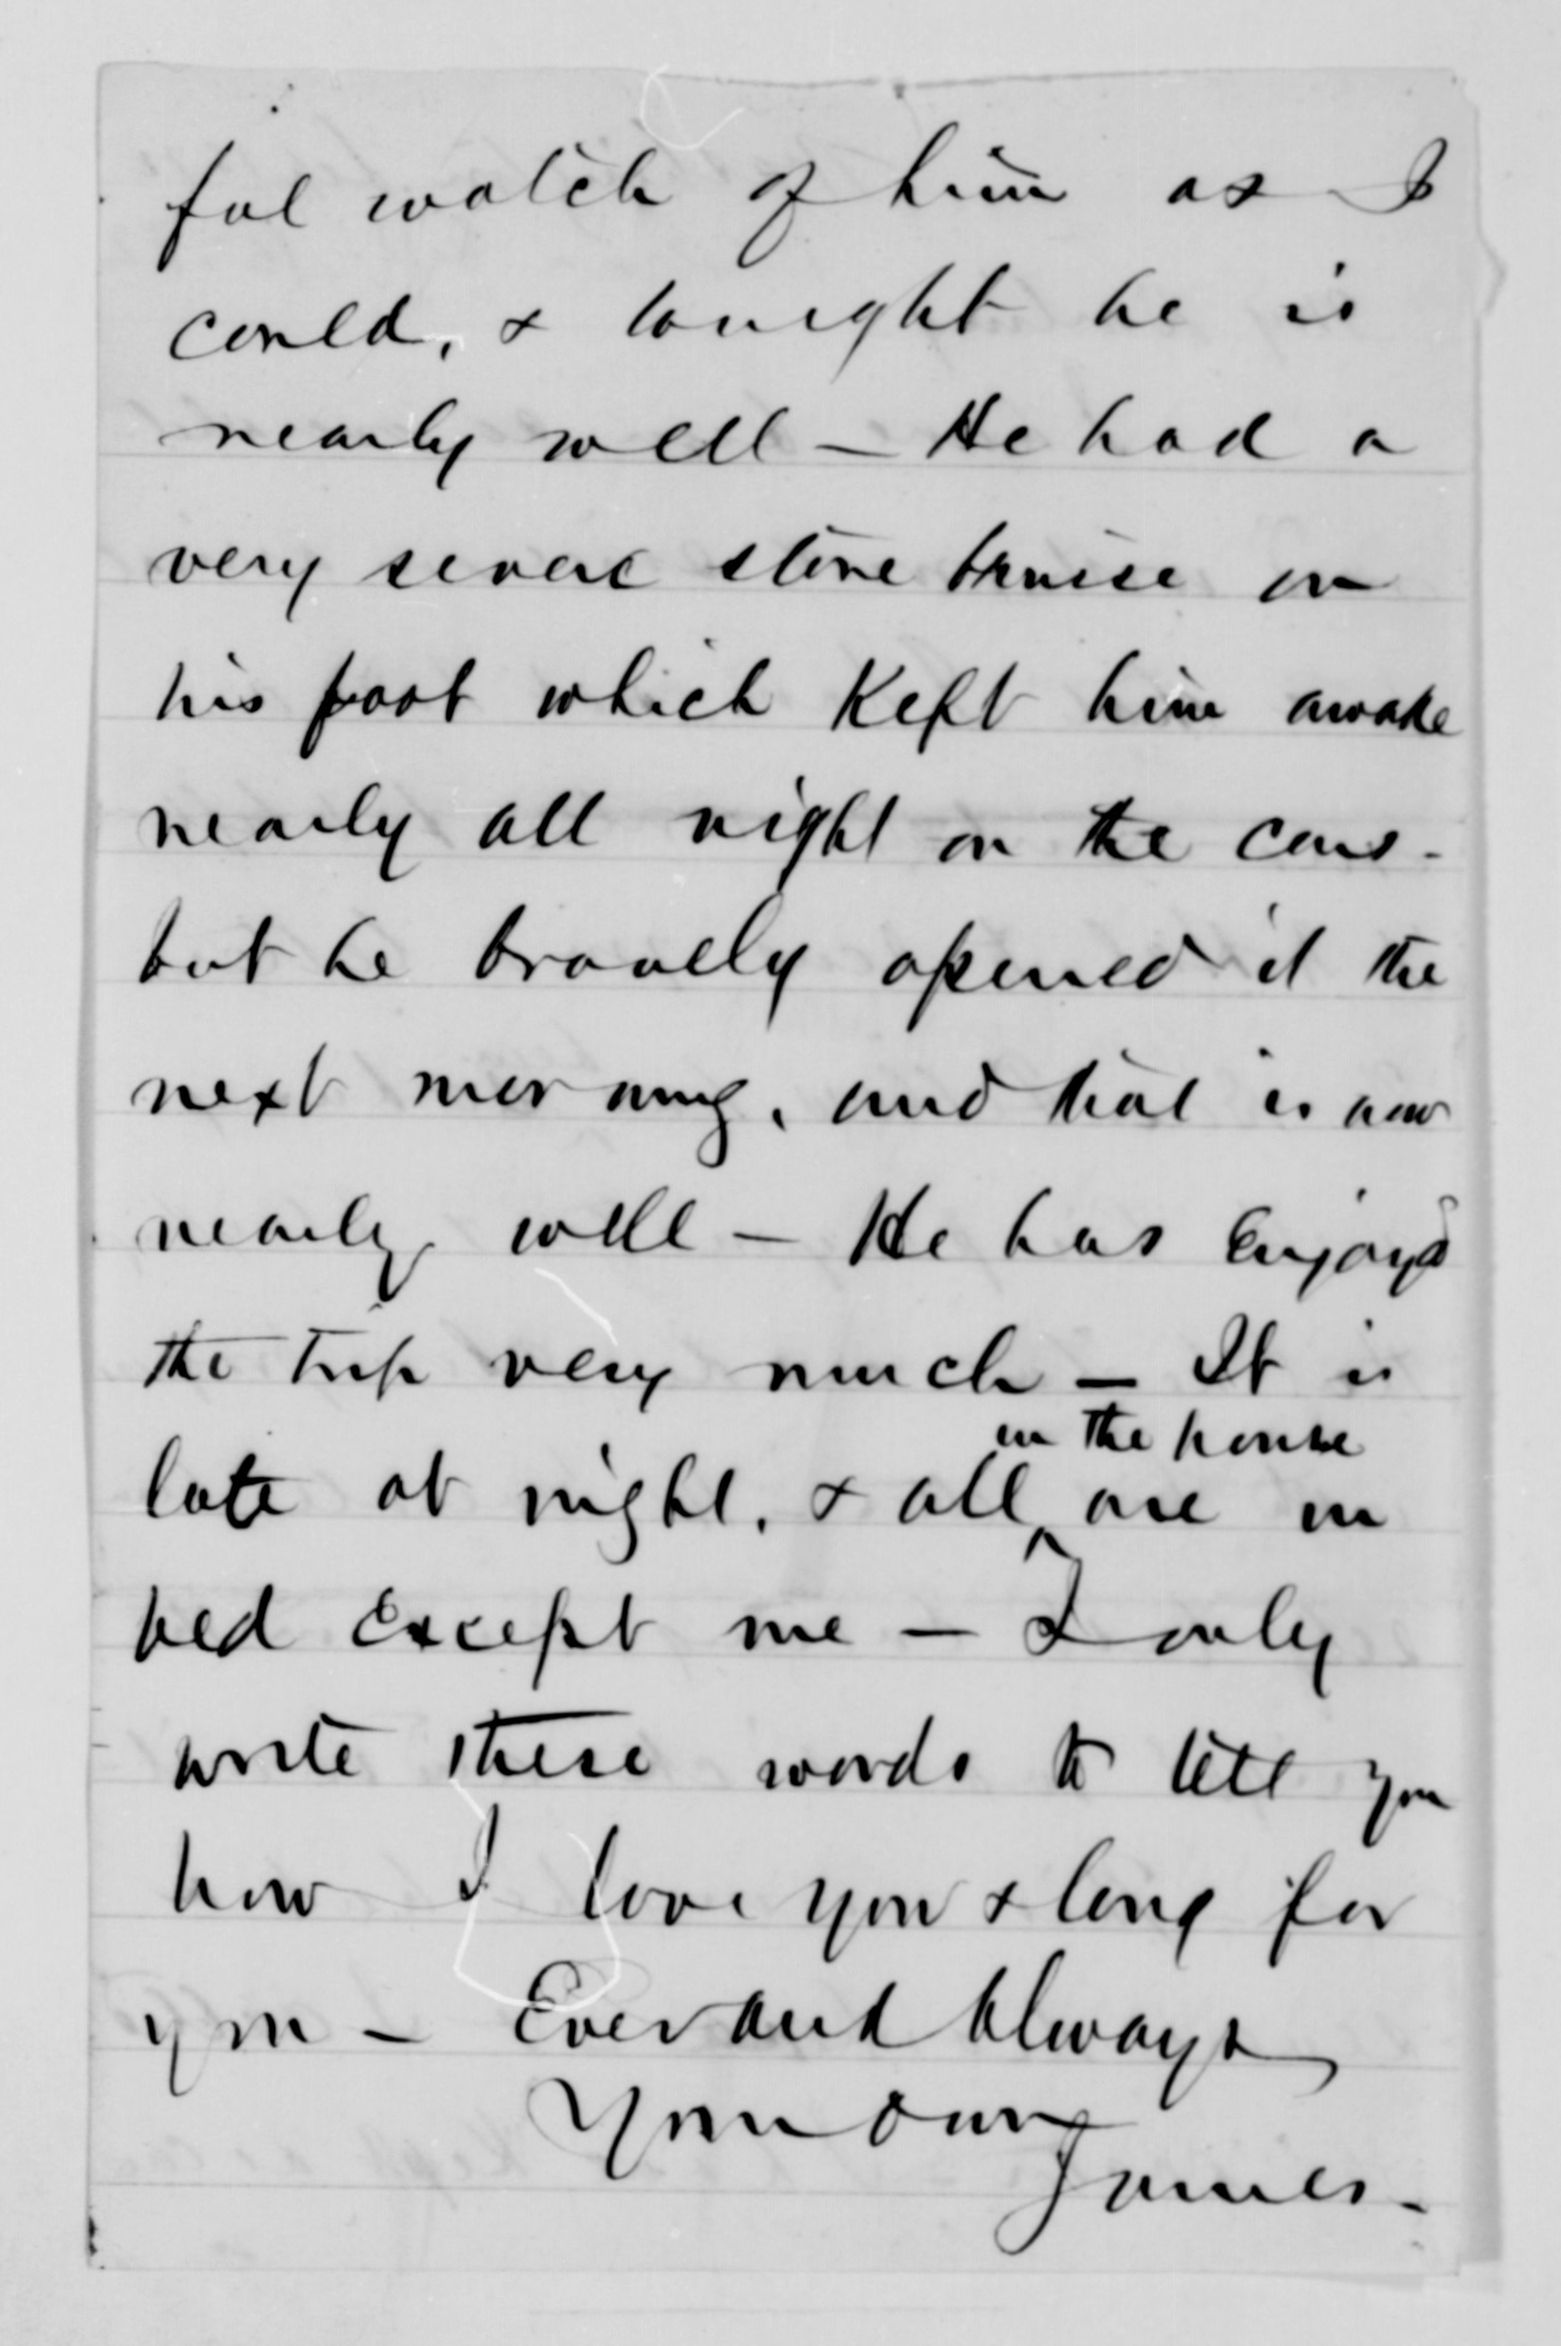 ful watch of him as I
could, & tonight he is
nearly well — He had a
very severe stone bruise on
his foot which Kept him awake
nearly all night on the cars -
but he bravely opened it the
next morning, and that is now
nearly well — He has enjoyd
the trip very much — It is
in the house
late at night, & all ^ are in
bed except me — I only
write these words to tell you
how I love you & long for
you — Ever and Always
Your own
James -